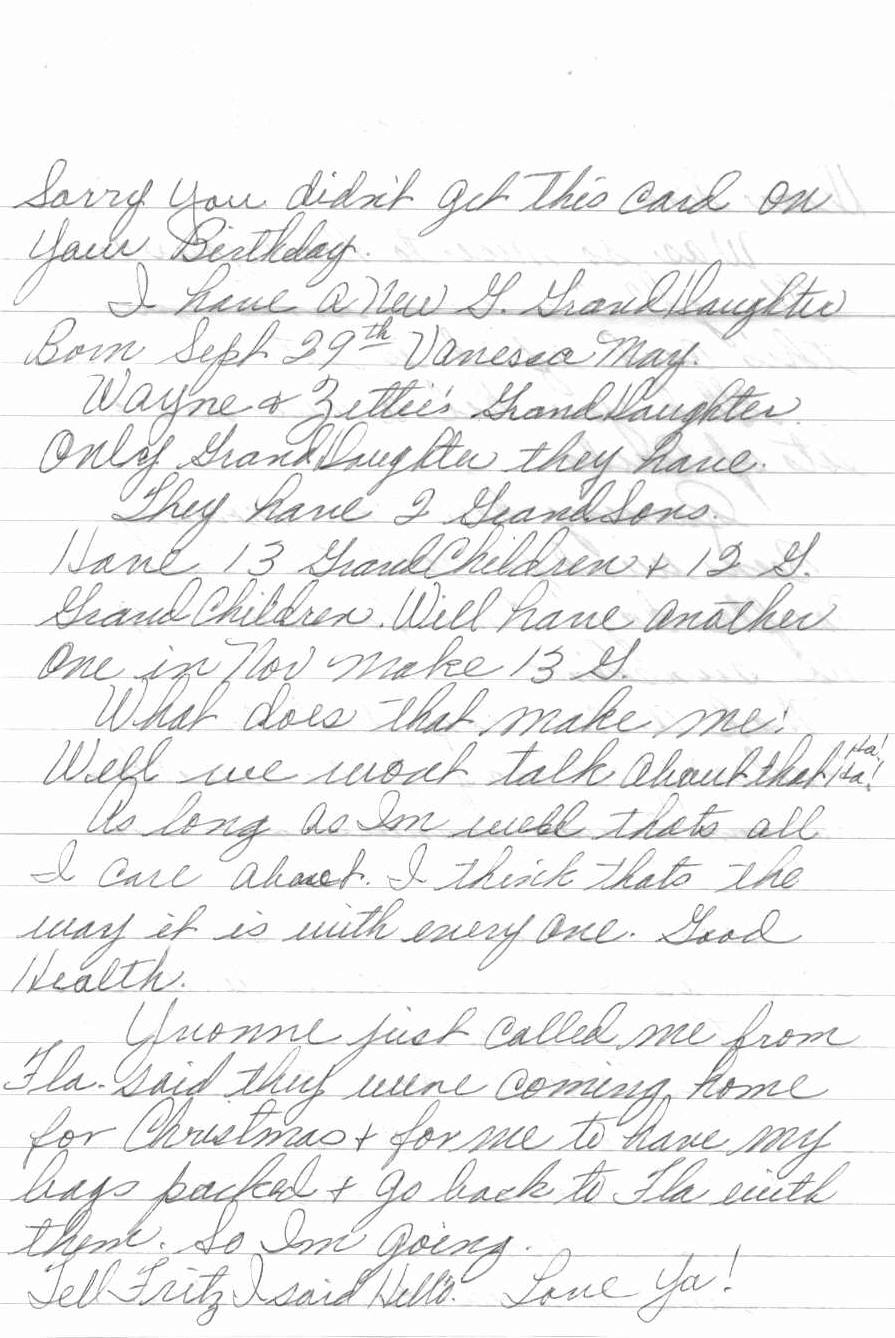 Sorry you didn't get this card on
your Birthday.
I have a New G. GrandDaughter
Born Sept 29th Vanessa May.
Wayne & Zettie's GrandDaughter
Only GrandDaughter they have.
They have 2 GrandSons.
Have 13 GrandChildren + 12 G.
GrandChildren. Will have another
one in Nov make 13 G.
What does that make me:
Well we wont talk about that Ha! Ha!
As long as Im well thats all
I care about. I think thats the
way it is with every one. Good
Health.
Yvonne just called me from
Fla. said they were coming home
for Christmas + for me to have my
bags packed + go back to Fla with
them. So Im going.
Tell Fritz I said Hello. Love Ya!